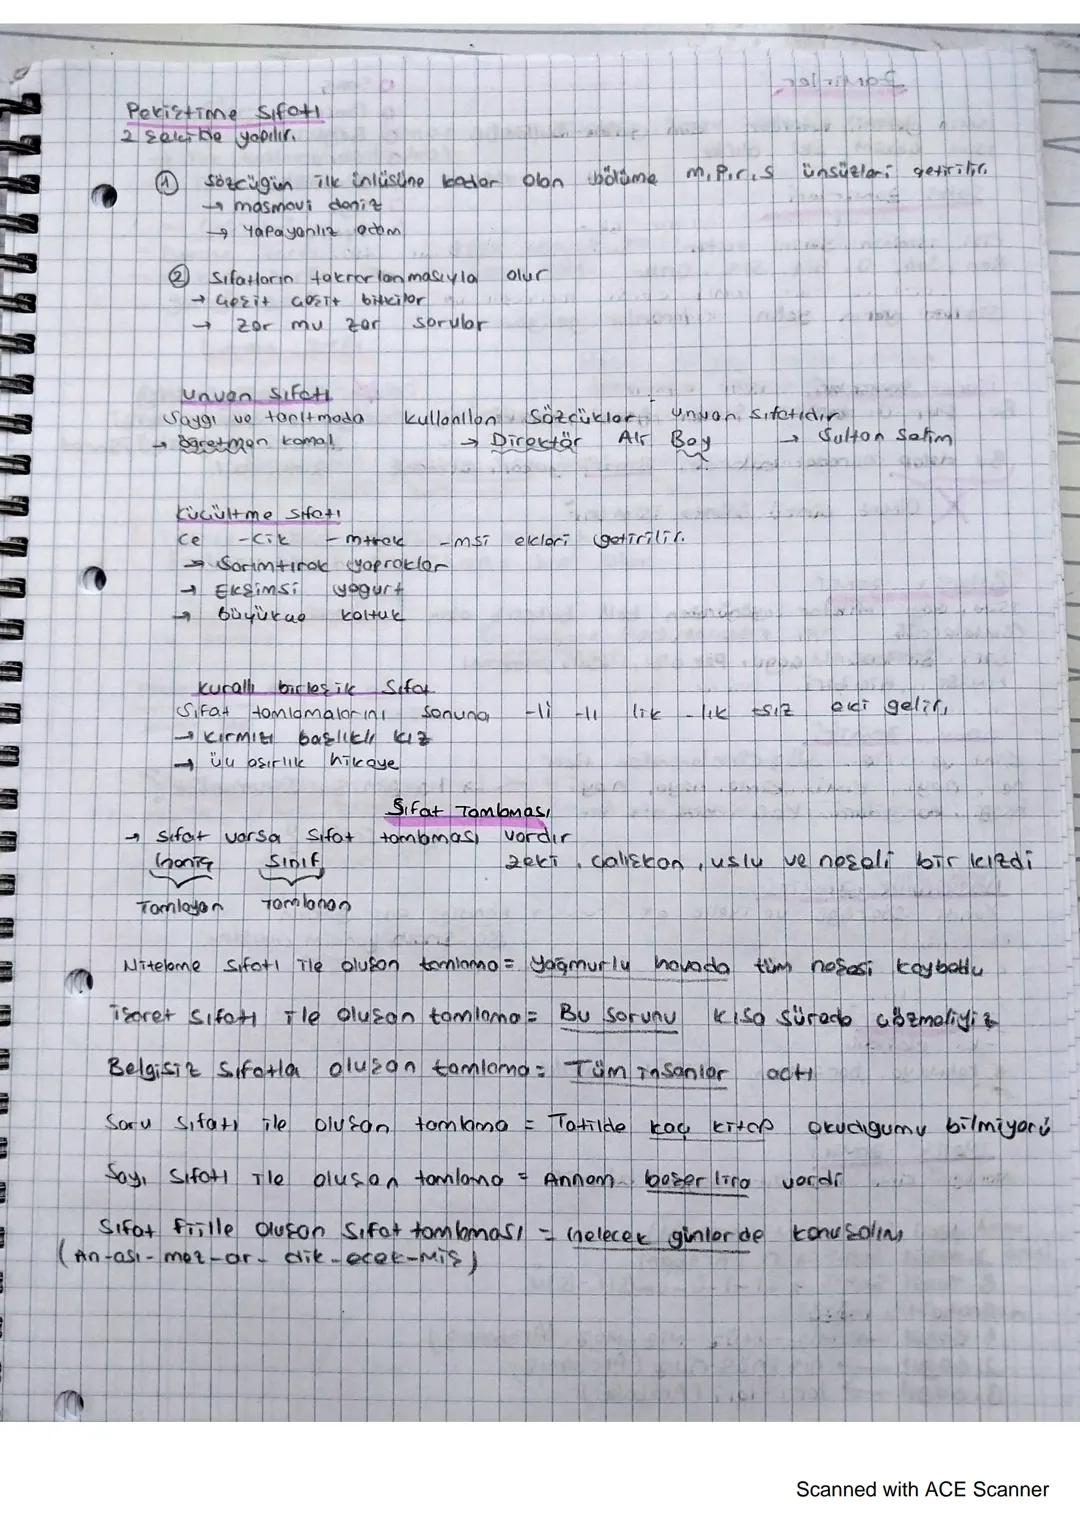 Pekiştime Sıfatı
2 şekilde yapılır.
① Sözcüğün ilk ünlüsüne kadar olan bölüme m,p,r,s ünsüzleri getirilir.
→ masmavi deniz
→ Yapayanlız adam
② Sıfatların tekrarlanmasıyla olur
→ Çeşit çeşit bitkiler
→ Zor mu zor sorular
Unvan Sıfatı
Saygı ve tanıtmada kullanılan sözcükler unvan sıfatıdır
→ öğretmen kemal → Direktör Ali Bey → Sultan Selim
Küçültme Sıfatı
Ce -Cik -mtrak -msi ekleri getirilir.
→ Sarımtırak yapraklar
→ Ekşimsi yogurt
→ Büyükçe koltuk
Kurallı birleşik Sıfat
Sıfat tamlamalarını sonuna -li -lı lik -lık -sız eki gelir,
→ Kırmızı başlıklı kız
→ üç asırlık hikaye
Sıfat Tamlaması
→ Sıfat varsa sıfat tamlaması vardır
Geniş Sınıf zeki, çalışkan, uslu ve neşeli bir kızdı
Tamlayan Tamlanan
Niteleme Sıfatı ile oluşan tamlama = Yağmurlu havada tüm neşesi kayboldu
İşaret Sıfatı ile oluşan tamlama = Bu sorunu kısa sürede çözmeliyiz
Belgisiz Sıfatla oluşan tamlama = Tüm insanlar açtı
Soru Sıfatı ile oluşan tamlama = Tatilde kaç kitap okudıgumu bilmiyorü
Sayı Sıfatı ile oluşan tamlama = Annem beşer lira verdi
Sıfat fiille oluşan Sıfat tamlaması = Gelecek günlerde konuşalım
(An-ası-mez-ar-dik-ecek-Miş)
Scanned with ACE Scanner